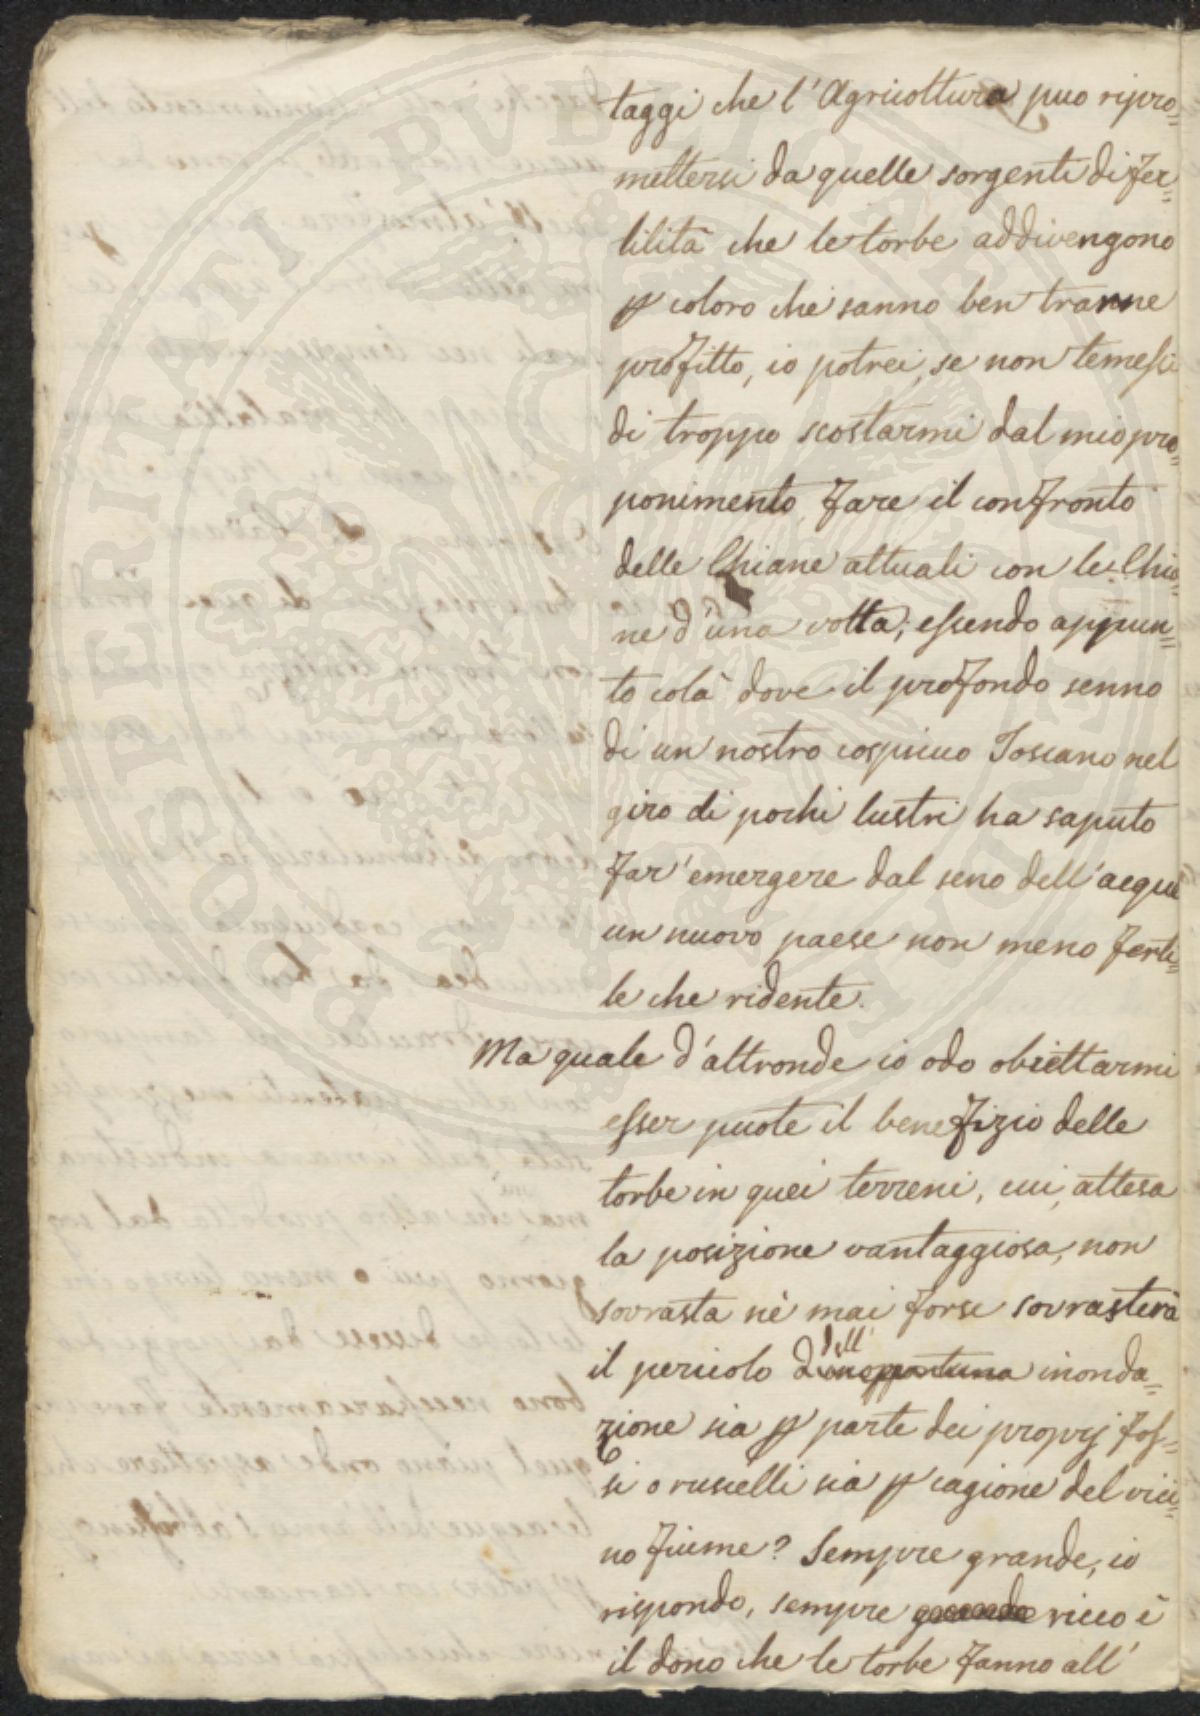 taggi che l'Agricoltura puo ripro=
mettersi da quelle sorgenti di fer=
tilità che le torbe addivengono
p coloro che sanno ben trarne
profitto, io potrei, se non temessi
di troppo scostarmi dal mio pro=
ponimento, fare il confronto
delle Chiane attuali con le Chia=
ne d'una volta; essendo appun=
to colà dove il profondo senno
di un nostro cospicuo Toscano nel
giro di pochi lustri ha saputo
far'emergere dal seno dell'acque
un nuovo paese non meno ferti=
le che ridente.
Ma quale d'altronde io odo obiettarmi
esser puote il benefizio delle
torbe in quei terreni, cui, attesa
la posizione vantaggiosa, non
sovrasta nè mai forse sovrasterà
il pericolo dell' inonda=
zione sia p parte dei proprj fos=
si o ruscelli sia p cagione del vici=
no fiume? Sempre grande, io
rispondo, sempre grande ricco è
il dono che le torbe fanno all'
PROSPERITATI PVBLICAE